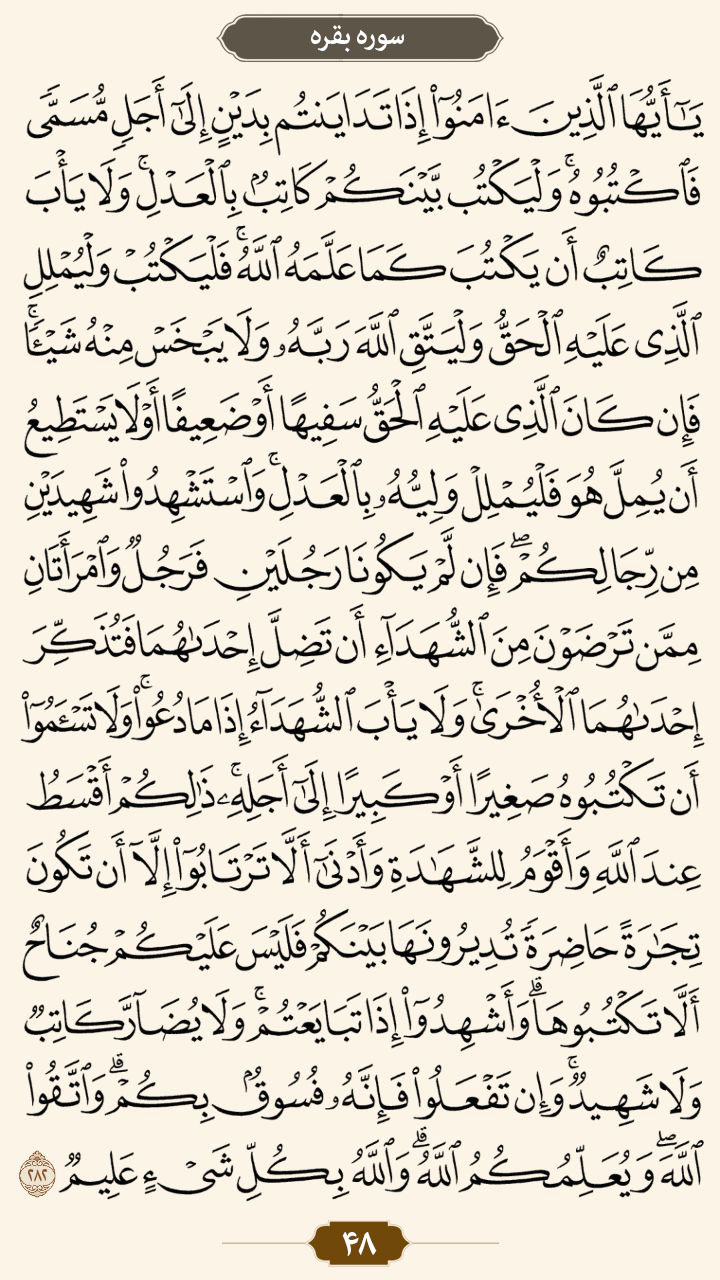 سوره بقره
يَـٰٓأَيُّهَا ٱلَّذِينَ ءَامَنُوٓا۟ إِذَا تَدَايَنتُم بِدَيْنٍ إِلَىٰٓ أَجَلٍ مُّسَمًّى
فَٱكْتُبُوهُ ۚ وَلْيَكْتُب بَّيْنَكُمْ كَاتِبٌۢ بِٱلْعَدْلِ ۚ وَلَا يَأْبَ
كَاتِبٌ أَن يَكْتُبَ كَمَا عَلَّمَهُ ٱللَّهُ ۚ فَلْيَكْتُبْ وَلْيُمْلِلِ
ٱلَّذِى عَلَيْهِ ٱلْحَقُّ وَلْيَتَّقِ ٱللَّهَ رَبَّهُۥ وَلَا يَبْخَسْ مِنْهُ شَيْـًٔا ۚ
فَإِن كَانَ ٱلَّذِى عَلَيْهِ ٱلْحَقُّ سَفِيهًا أَوْ ضَعِيفًا أَوْ لَا يَسْتَطِيعُ
أَن يُمِلَّ هُوَ فَلْيُمْلِلْ وَلِيُّهُۥ بِٱلْعَدْلِ ۚ وَٱسْتَشْهِدُوا۟ شَهِيدَيْنِ
مِن رِّجَالِكُمْ ۖ فَإِن لَّمْ يَكُونَا رَجُلَيْنِ فَرَجُلٌ وَٱمْرَأَتَانِ
مِمَّن تَرْضَوْنَ مِنَ ٱلشُّهَدَآءِ أَن تَضِلَّ إِحْدَىٰهُمَا فَتُذَكِّرَ
إِحْدَىٰهُمَا ٱلْأُخْرَىٰ ۚ وَلَا يَأْبَ ٱلشُّهَدَآءُ إِذَا مَا دُعُوا۟ ۚ وَلَا تَسْـَٔمُوٓا۟
أَن تَكْتُبُوهُ صَغِيرًا أَوْ كَبِيرًا إِلَىٰٓ أَجَلِهِۦ ۚ ذَٰلِكُمْ أَقْسَطُ
عِندَ ٱللَّهِ وَأَقْوَمُ لِلشَّهَـٰدَةِ وَأَدْنَىٰٓ أَلَّا تَرْتَابُوٓا۟ إِلَّآ أَن تَكُونَ
تِجَـٰرَةً حَاضِرَةً تُدِيرُونَهَا بَيْنَكُمْ فَلَيْسَ عَلَيْكُمْ جُنَاحٌ
أَلَّا تَكْتُبُوهَا ۗ وَأَشْهِدُوٓا۟ إِذَا تَبَايَعْتُمْ ۚ وَلَا يُضَآرَّ كَاتِبٌ
وَلَا شَهِيدٌ ۚ وَإِن تَفْعَلُوا۟ فَإِنَّهُۥ فُسُوقٌۢ بِكُمْ ۗ وَٱتَّقُوا۟
ٱللَّهَ ۖ وَيُعَلِّمُكُمُ ٱللَّهُ ۗ وَٱللَّهُ بِكُلِّ شَىْءٍ عَلِيمٌ ۲۸۲
۴۸